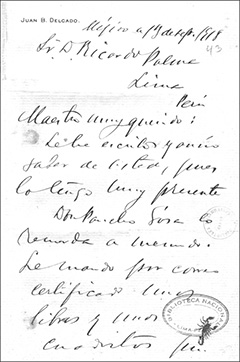 JUAN B. DELGADO.
Méjico a 19 de sep. 1918
43
Sr. D. Ricardo Palma
Lima
Perú
Maestro muy querido:
Le he escrito y
de Usted, pues
lo tengo muy presente
Don Pancho Sosa lo
recuerda a menudo.
Le mando por correo
certificado unos
libros y unos
BIBLIOTECA NACIONAL
LIMA